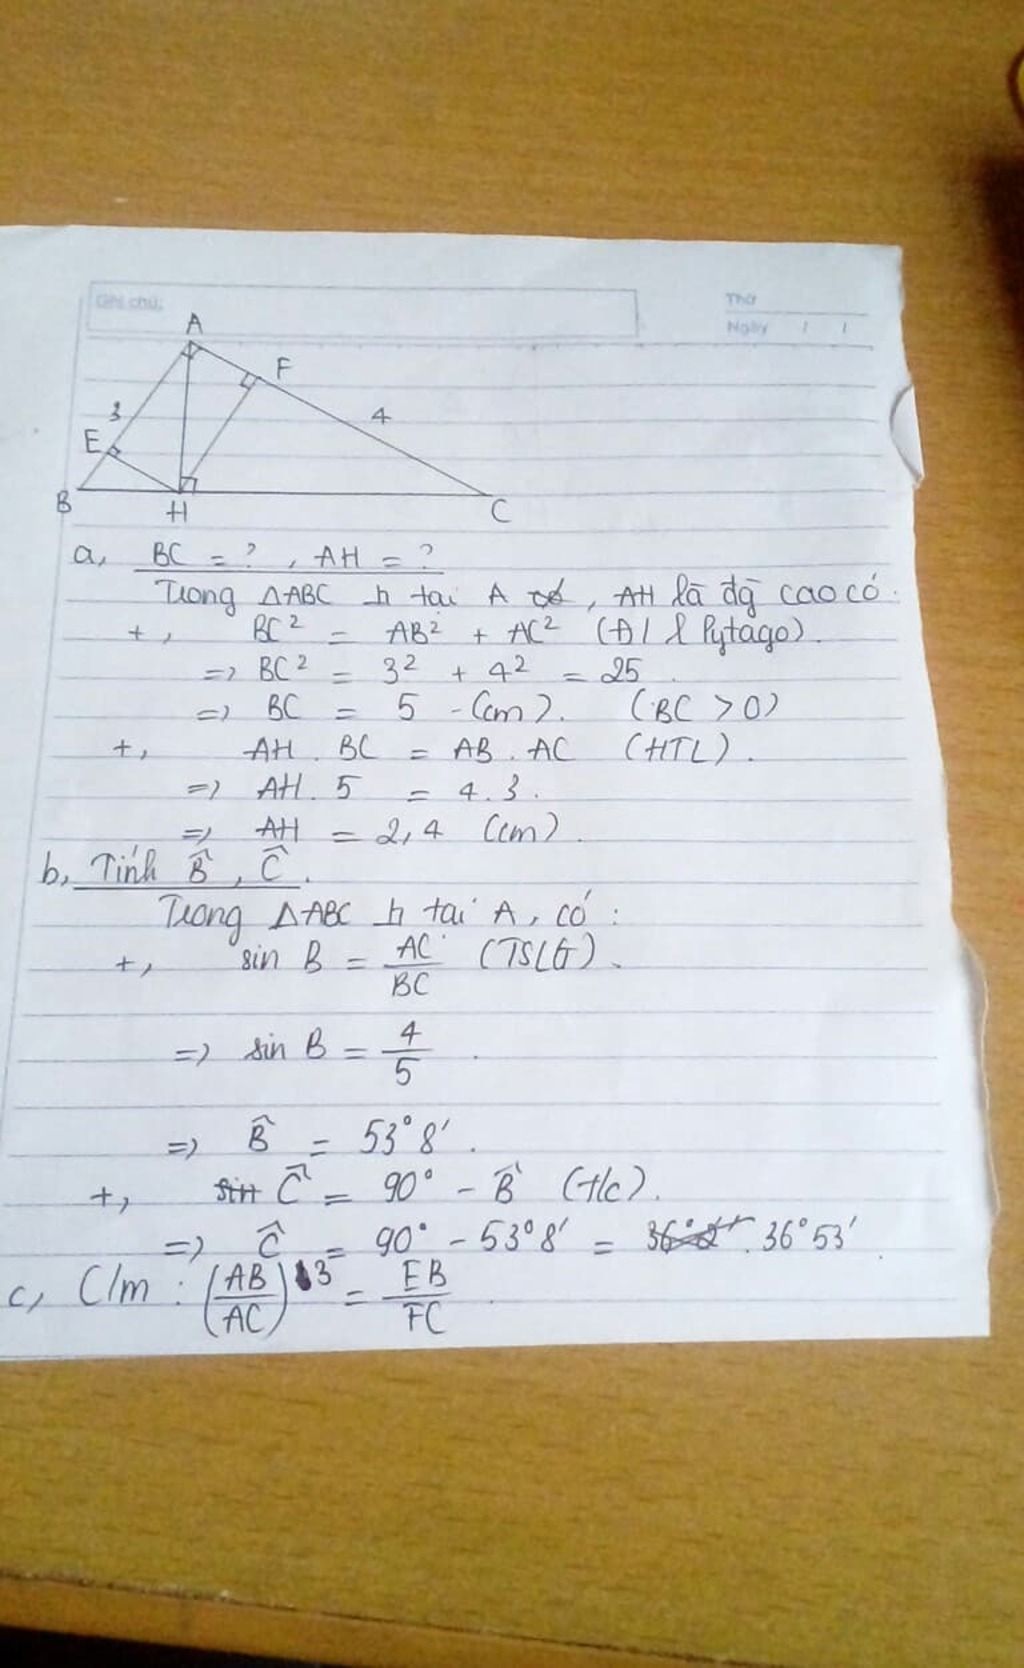 Ghi chú:
Thứ
Ngày / /
A
F
3
4
E
B
H
C
a, BC = ? , AH = ?
Trong △ABC h tại A có, AH là đg cao có.
+, BC² = AB² + AC² (Đ/l Pytago).
=> BC² = 3² + 4² = 25
=> BC = 5 (cm). (BC > 0)
+, AH . BC = AB . AC (HTL).
=> AH. 5 = 4.3.
=> AH = 2,4 (cm).
b, Tính B̂, Ĉ.
Trong △ABC h tại A, có :
+, sin B = AC/BC (TSLG).
=> sin B = 4/5.
=> B̂ = 53°8'.
+, sin Ĉ = 90° - B̂ (t/c).
=> Ĉ = 90° - 53°8' = 36°53'.
c, C/m : (AB/AC)³ = EB/FC.